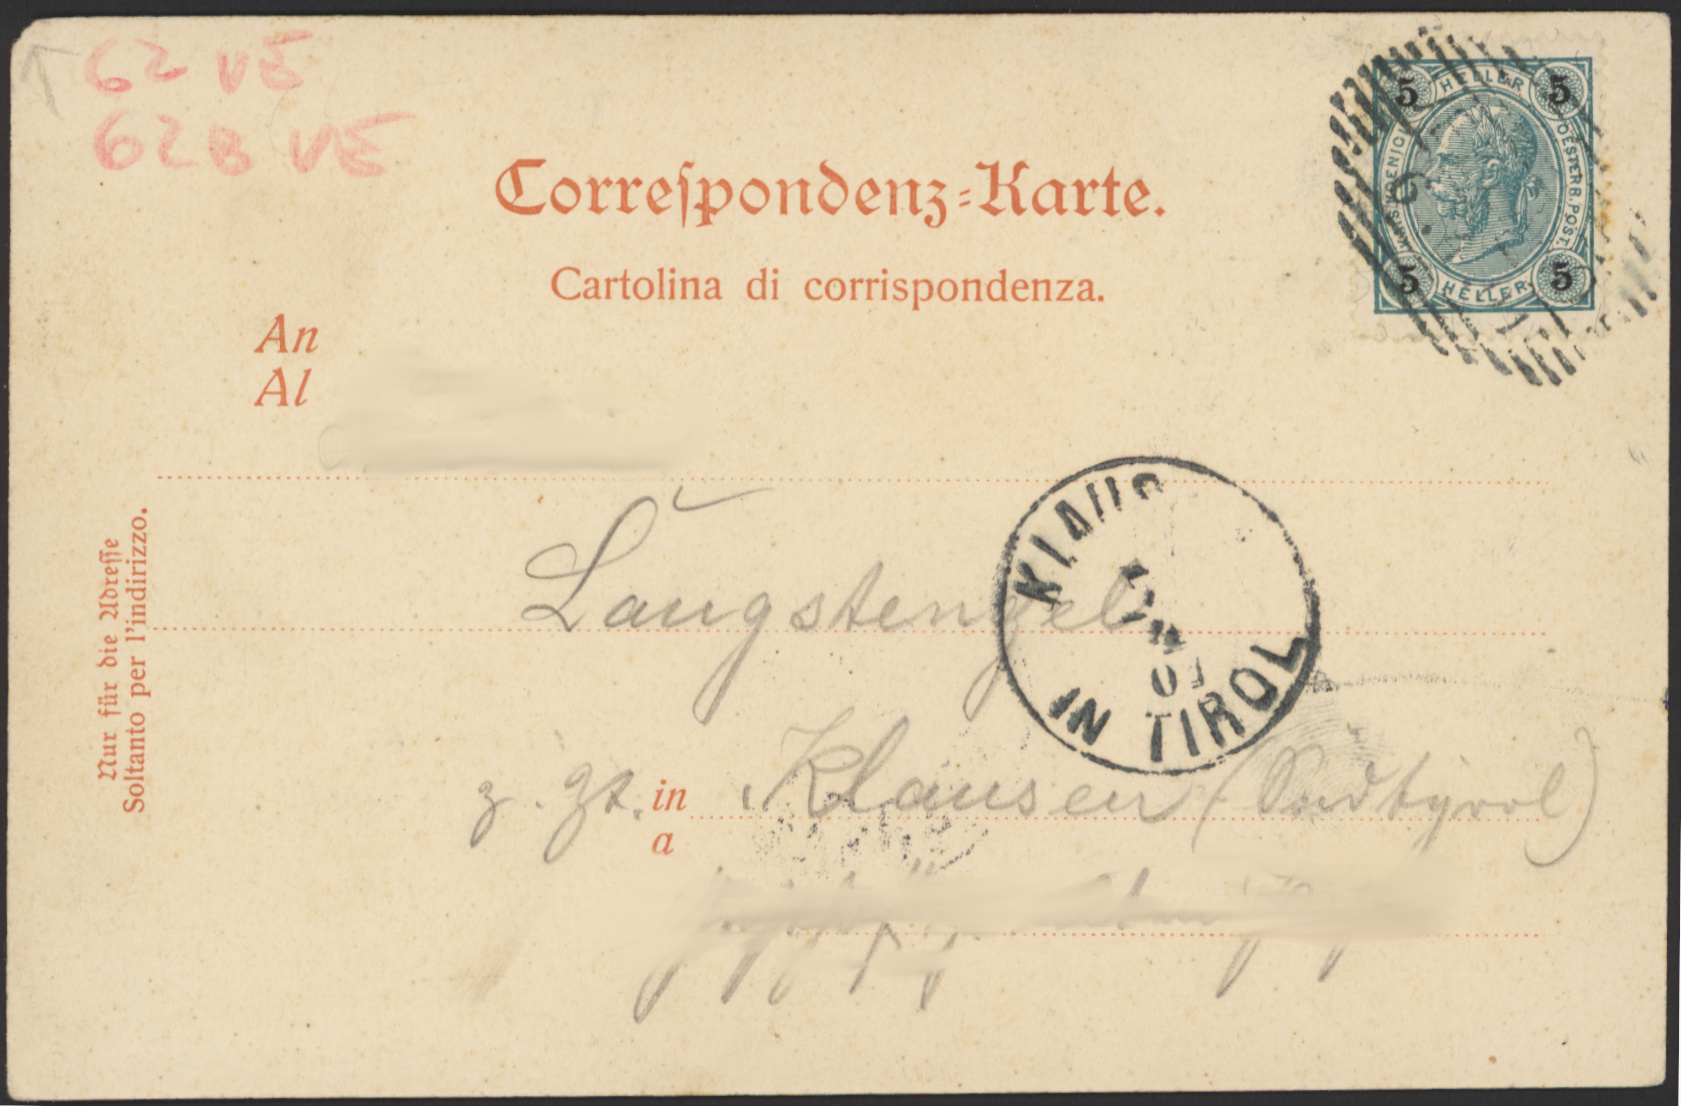 62 VE
62B VE
5 HELLER 5
KAIS. KOENIGL. OESTERR. POST.
5 HELLER 5
Correſpondenz=Karte.
Cartolina di corrispondenza.
An
Al
Nur für die Adreſſe
Soltanto per l'indirizzo.
Laŭgstengel
KLAUS
01
IN TIROL
z. Zt. in Klausen (Südtyrol)
a